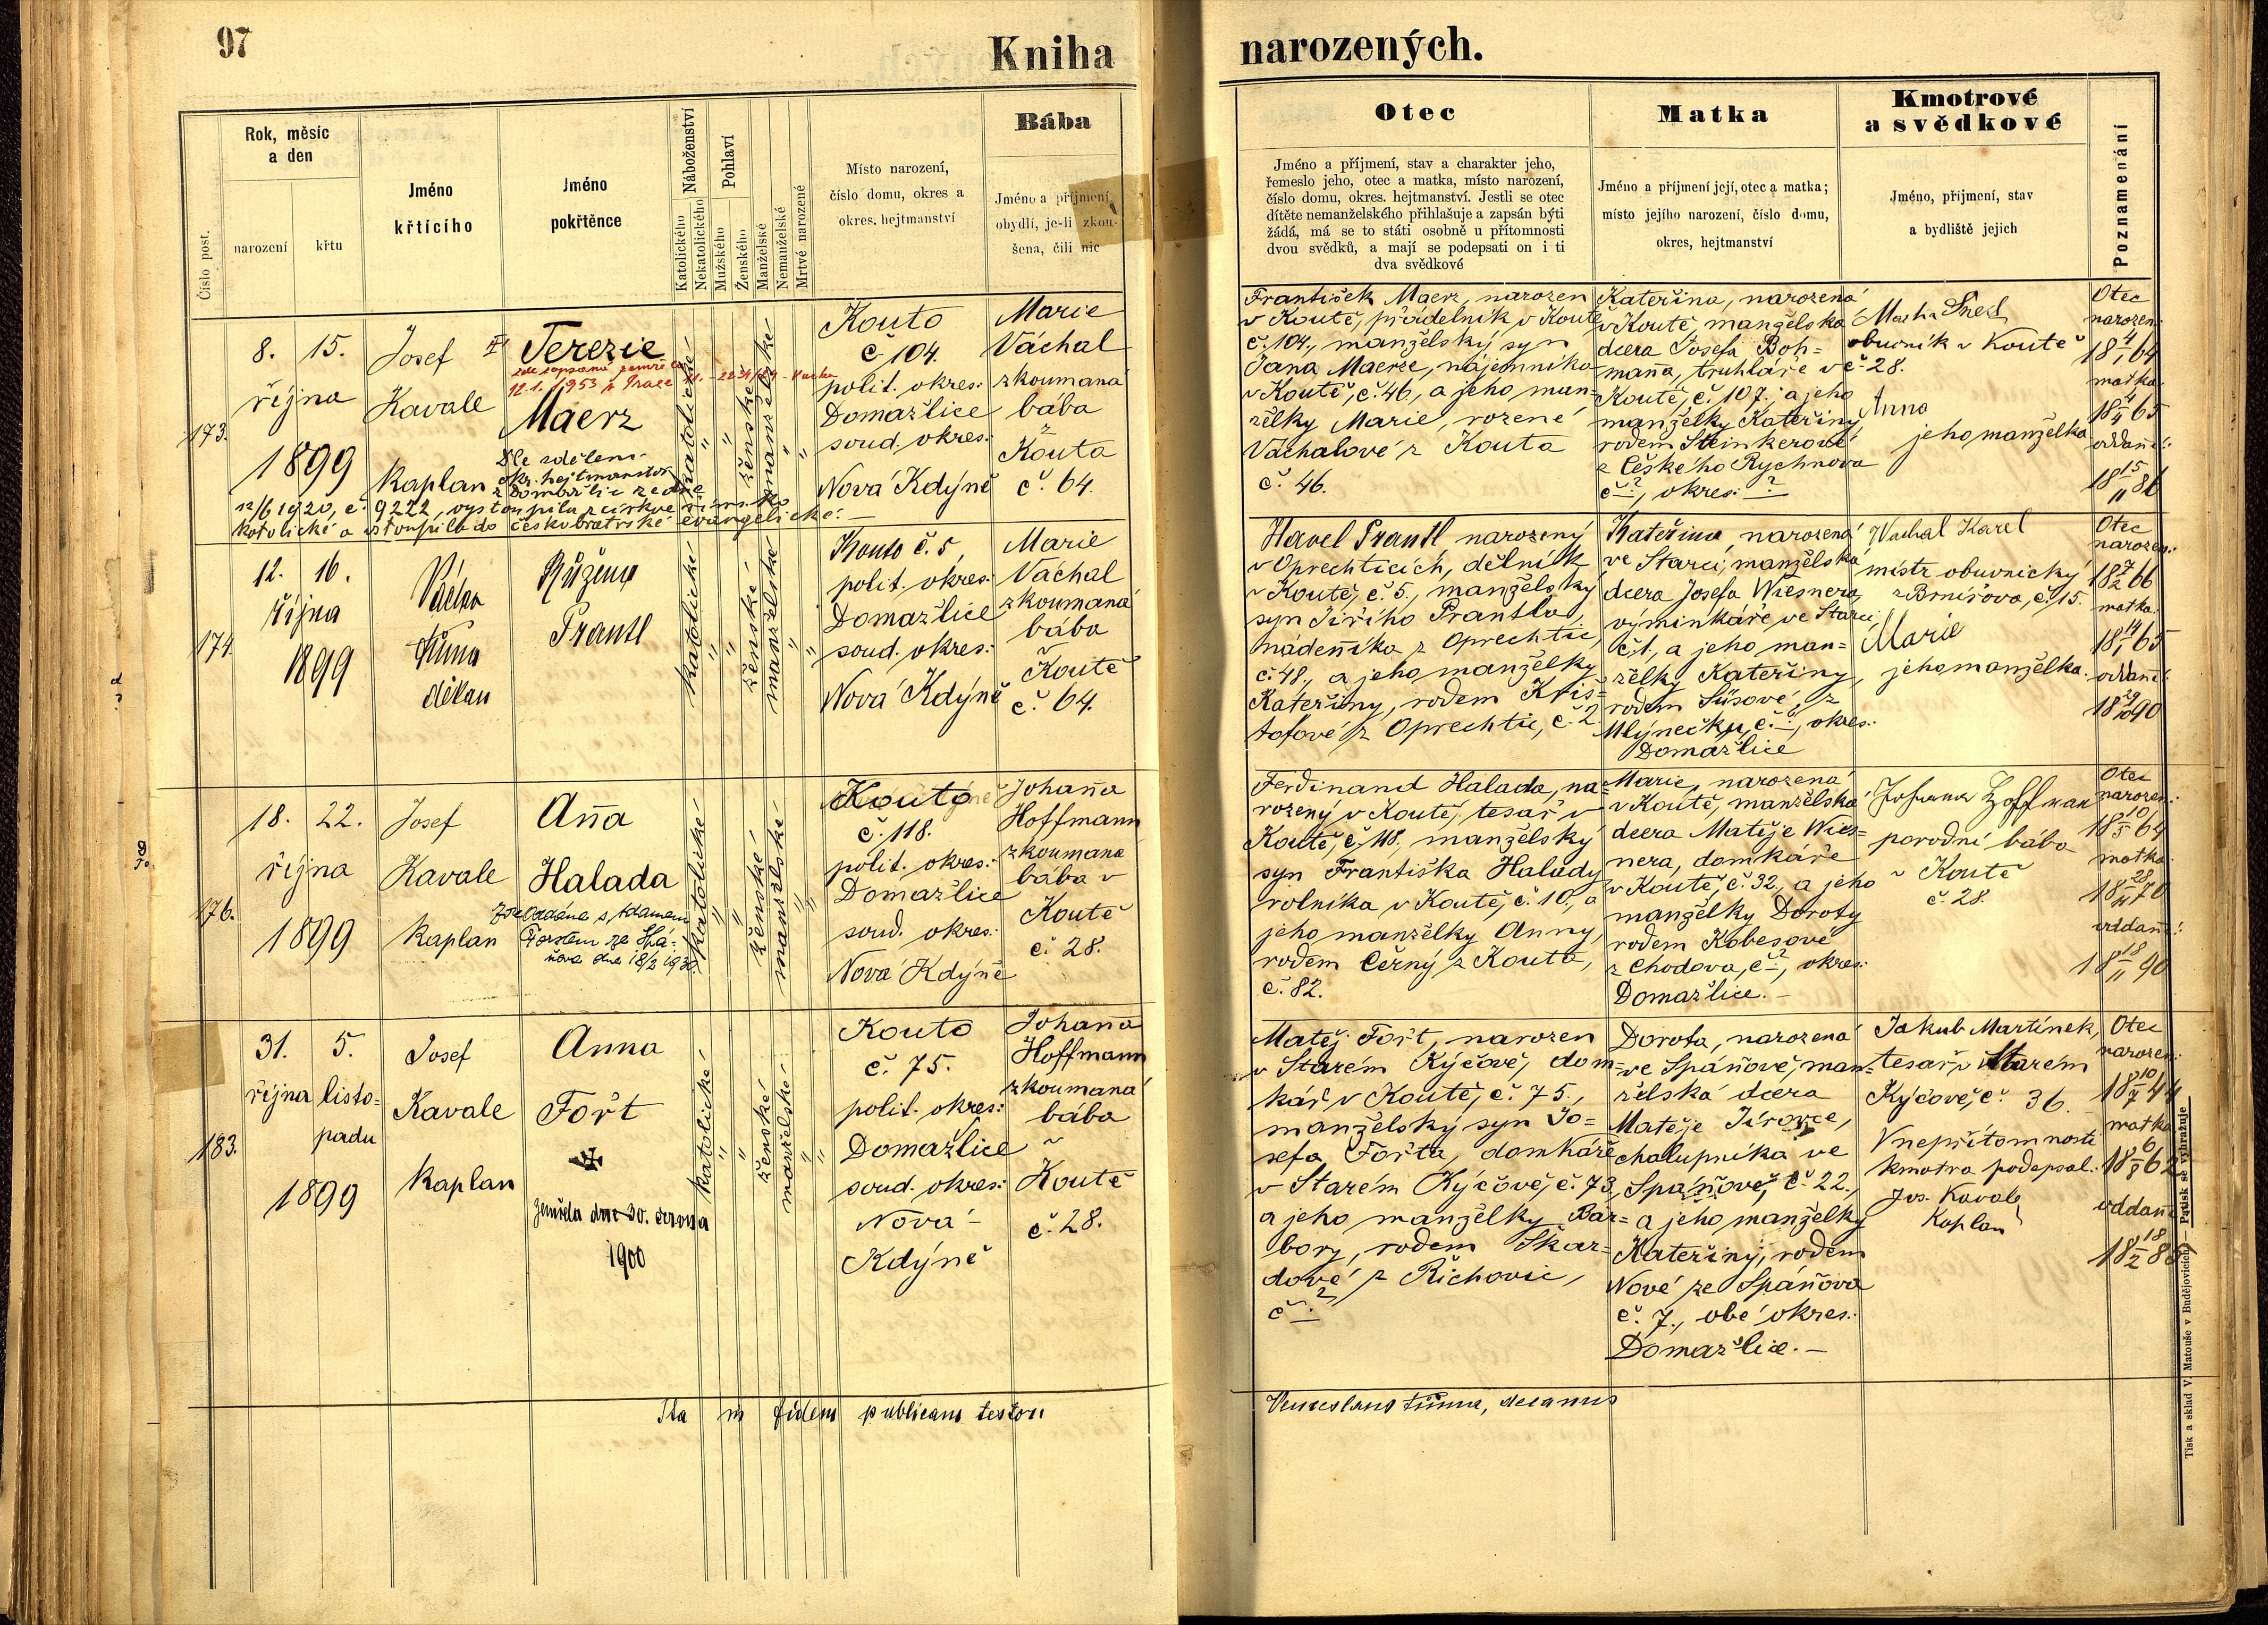 97
Kniha
narozených.
Číslo post.
Rok, měsíc
a den
narození
křtu
Jméno
křtícího
Jméno
pokřtěnce
Náboženství
Katolického
Nekatolického
Pohlaví
Mužského
Ženského
Manželské
Nemanželské
Mrtvé narozené
Místo narození,
číslo domu, okres a
okres. hejtmanství
Bába
Jméno a příjmení,
obydlí, je-li zkou-
šena, čili nic
Otec
Jméno a příjmení, stav a charakter jeho,
řemeslo jeho, otec a matka, místo narození,
číslo domu, okres. hejtmanství. Jestli se otec
dítěte nemanželského přihlašuje a zapsán býti
žádá, má se to státi osobně u přítomnosti
dvou svědků, a mají se podepsati on i ti
dva svědkové
Matka
Jméno a příjmení její, otec a matka;
místo jejího narození, číslo domu,
okres, hejtmanství
Kmotrové
a svědkové
Jméno, příjmení, stav
a bydliště jejich
Poznamenání
173.
8. 15.
října
1899
Josef
Kavale
Kaplan
Terezie
zde zapsaná zemřela
12.1.1953 v Praze
Maerz
Dle sdělení
okr. hejtmanství
z Domažlic ze dne
12/6 1920, č. 9222, vystoupila z církve římsko
katolické a vstoupila do českobratrské evangelické.
katolické
ženské
manželské
Kouto
č. 104.
polit. okres:
Domažlice
soud. okres:
Nová Kdýně
Marie
Váchal
zkoumaná
bába
z
Kouta
č. 64.
František Maerz, narozen
v Koutě, přádelník v Koutě
č. 104., manželský syn
Jana Maerze, nájemníka
v Koutě, č. 46, a jeho man-
želky Marie, rozené
Váchalové z Kouta
č. 46.
Kateřina, narozená
v Koutě, manželská
dcera Josefa Boh=
mana, truhláře v
Koutě, č. 107., a jeho
manželky Kateřiny
rodem Steinkerové
z Českého Rychnova
č. ?, okres: ?
obuvník v Koutě
č. 28.
Anna
jeho manželka
Otec
narozen:
18 4/1 64
matka:
18 4/4 65
oddaní:
18 15/11 86
174.
12. 16.
října
1899
Václav
Tůma
děkan
Růžena
Prantl
katolické
ženské
manželské
Kouto č. 5,
polit. okres:
Domažlice
soud. okres:
Nová Kdýně
Marie
Váchal
zkoumaná
bába
v
Koutě
č. 64.
Havel Prantl narozený
v Oprechticích, dělník
v Koutě, č. 5., manželský
syn Jiřího Prantla,
nádenníka z Oprechtic,
č. 48., a jeho manželky
Kateřiny, rodem Kris=
tofové z Oprechtic, č. 2.
Kateřina, narozená
ve Starci, manželská
dcera Josefa Wiesnera,
výminkáře ve Starci,
č. 1., a jeho man=
želky Kateřiny,
rodem Süsové, z
Mlýnečku, č. 6, okres:
Domažlice
Vachal Karel
mistr obuvnický
z Brnířova, č. 15.
Marie
jeho manželka.
Otec
narozen:
18 7/2 66
matka:
18 14/1 65
oddaní:
18 29/10 90
176.
18. 22.
října
1899
Josef
Kavale
Kaplan
Anna
Halada
Zde Oddána s Adamem
Forstem ze Spá-
ňova dne 18/2 1930.
katolické
ženské
manželské
Kouto
č. 118.
polit. okres:
Domažlice
soud. okres:
Nová Kdýně
Johanna
Hoffmann
zkoumaná
bába v
Koutě
č. 28.
Ferdinand Halada, na=
rozený v Koutě, tesař v
Koutě, č. 118, manželský
syn Františka Halady
rolníka v Koutě, č. 10, a
jeho manželky Anny,
rodem Černý z Kouta,
č. 82.
Marie, narozená
v Koutě, manželská
dcera Matěje Wies=
nera, domkáře
v Koutě, č. 32, a jeho
manželky Doroty
rodem Kobesové
z Chodova, č. ?, okres:
Domažlice. —
Johanna Hoffman
porodní bába
v Koutě
č. 28.
Otec
narozen:
18 10/5 64
matka:
18 28/11 70
oddaní:
18 18/11 90
183.
31. 5.
října listo=
padu
1899
Josef
Kavale
Kaplan
Anna
Fořt
✠
zemřela dne 30. června
1900
katolické
ženské
manželské
Kouto
č. 75.
polit. okres:
Domažlice
soud. okres:
Nová-
Kdýně
Johanna
Hoffmann
zkoumaná
bába
v
Koutě
č. 28.
Matěj Fořt, narozen
v Starém Kýčově, dom=
kář v Koutě, č. 75.,
manželský syn Jo=
sefa Fořta, domkáře
v Starém Kýčově, č. 73,
a jeho manželky Bar=
bory, rodem Skar=
dové z Řichovic,
č. ?
Dorota, narozená
ve Spáňově, man=
želská dcera
Matěje Jírovce,
chalupníka ve
Spáňově, č. 22.,
a jeho manželky
Kateřiny, rodem
Nové ze Spáňova
č. 7., obé okres:
Domažlice. —
Jakub Martínek,
tesař v Starém
Kýčově, č. 36.
V nepřítomnosti
kmotra podepsal:
Jos. Kavale
Kaplan
Otec
narozen:
18 10/7 44
matka
18 6/8 62
oddaní
18 18/2 88
Ita in fidem publicam testor
Venceslaus Tůma, decanus
Tisk a sklad V. Matouše v Budějovicích — Patisk se vyhražuje